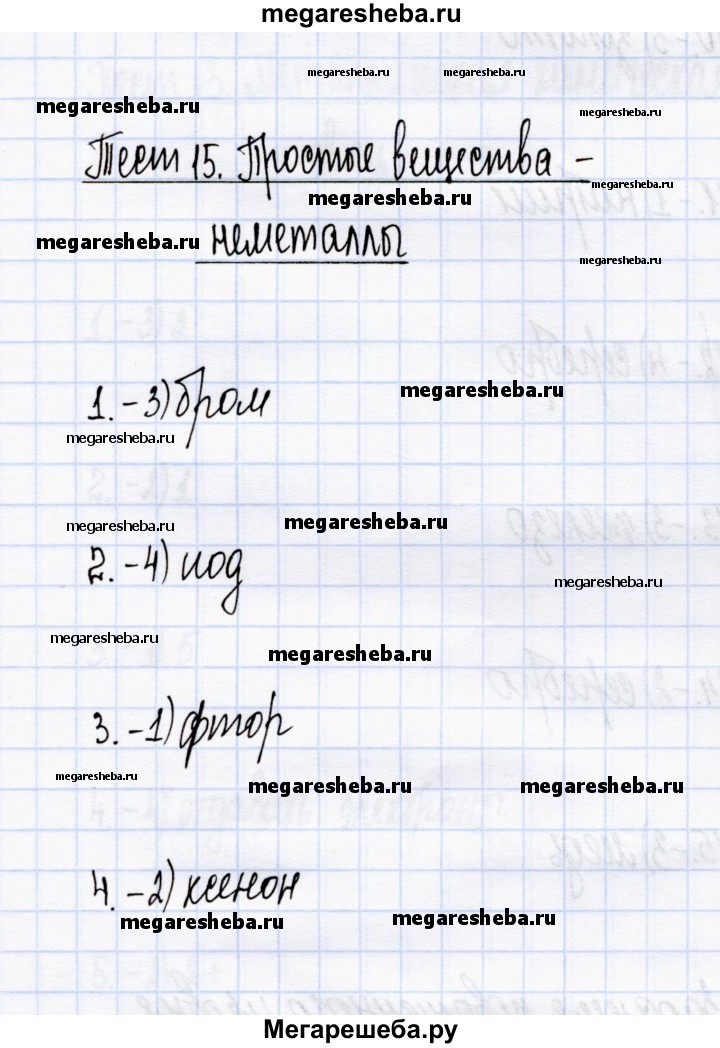 megaresheba.ru
megaresheba.ru megaresheba.ru
megaresheba.ru megaresheba.ru
Тест 15. Простые вещества –
megaresheba.ru
megaresheba.ru
неметаллы
megaresheba.ru megaresheba.ru
1. – 3) бром
megaresheba.ru
megaresheba.ru
megaresheba.ru megaresheba.ru
2. – 4) иод
megaresheba.ru
megaresheba.ru
megaresheba.ru
3. – 1) фтор
megaresheba.ru
megaresheba.ru megaresheba.ru
4. – 2) ксенон
megaresheba.ru megaresheba.ru
Мегарешеба.ру